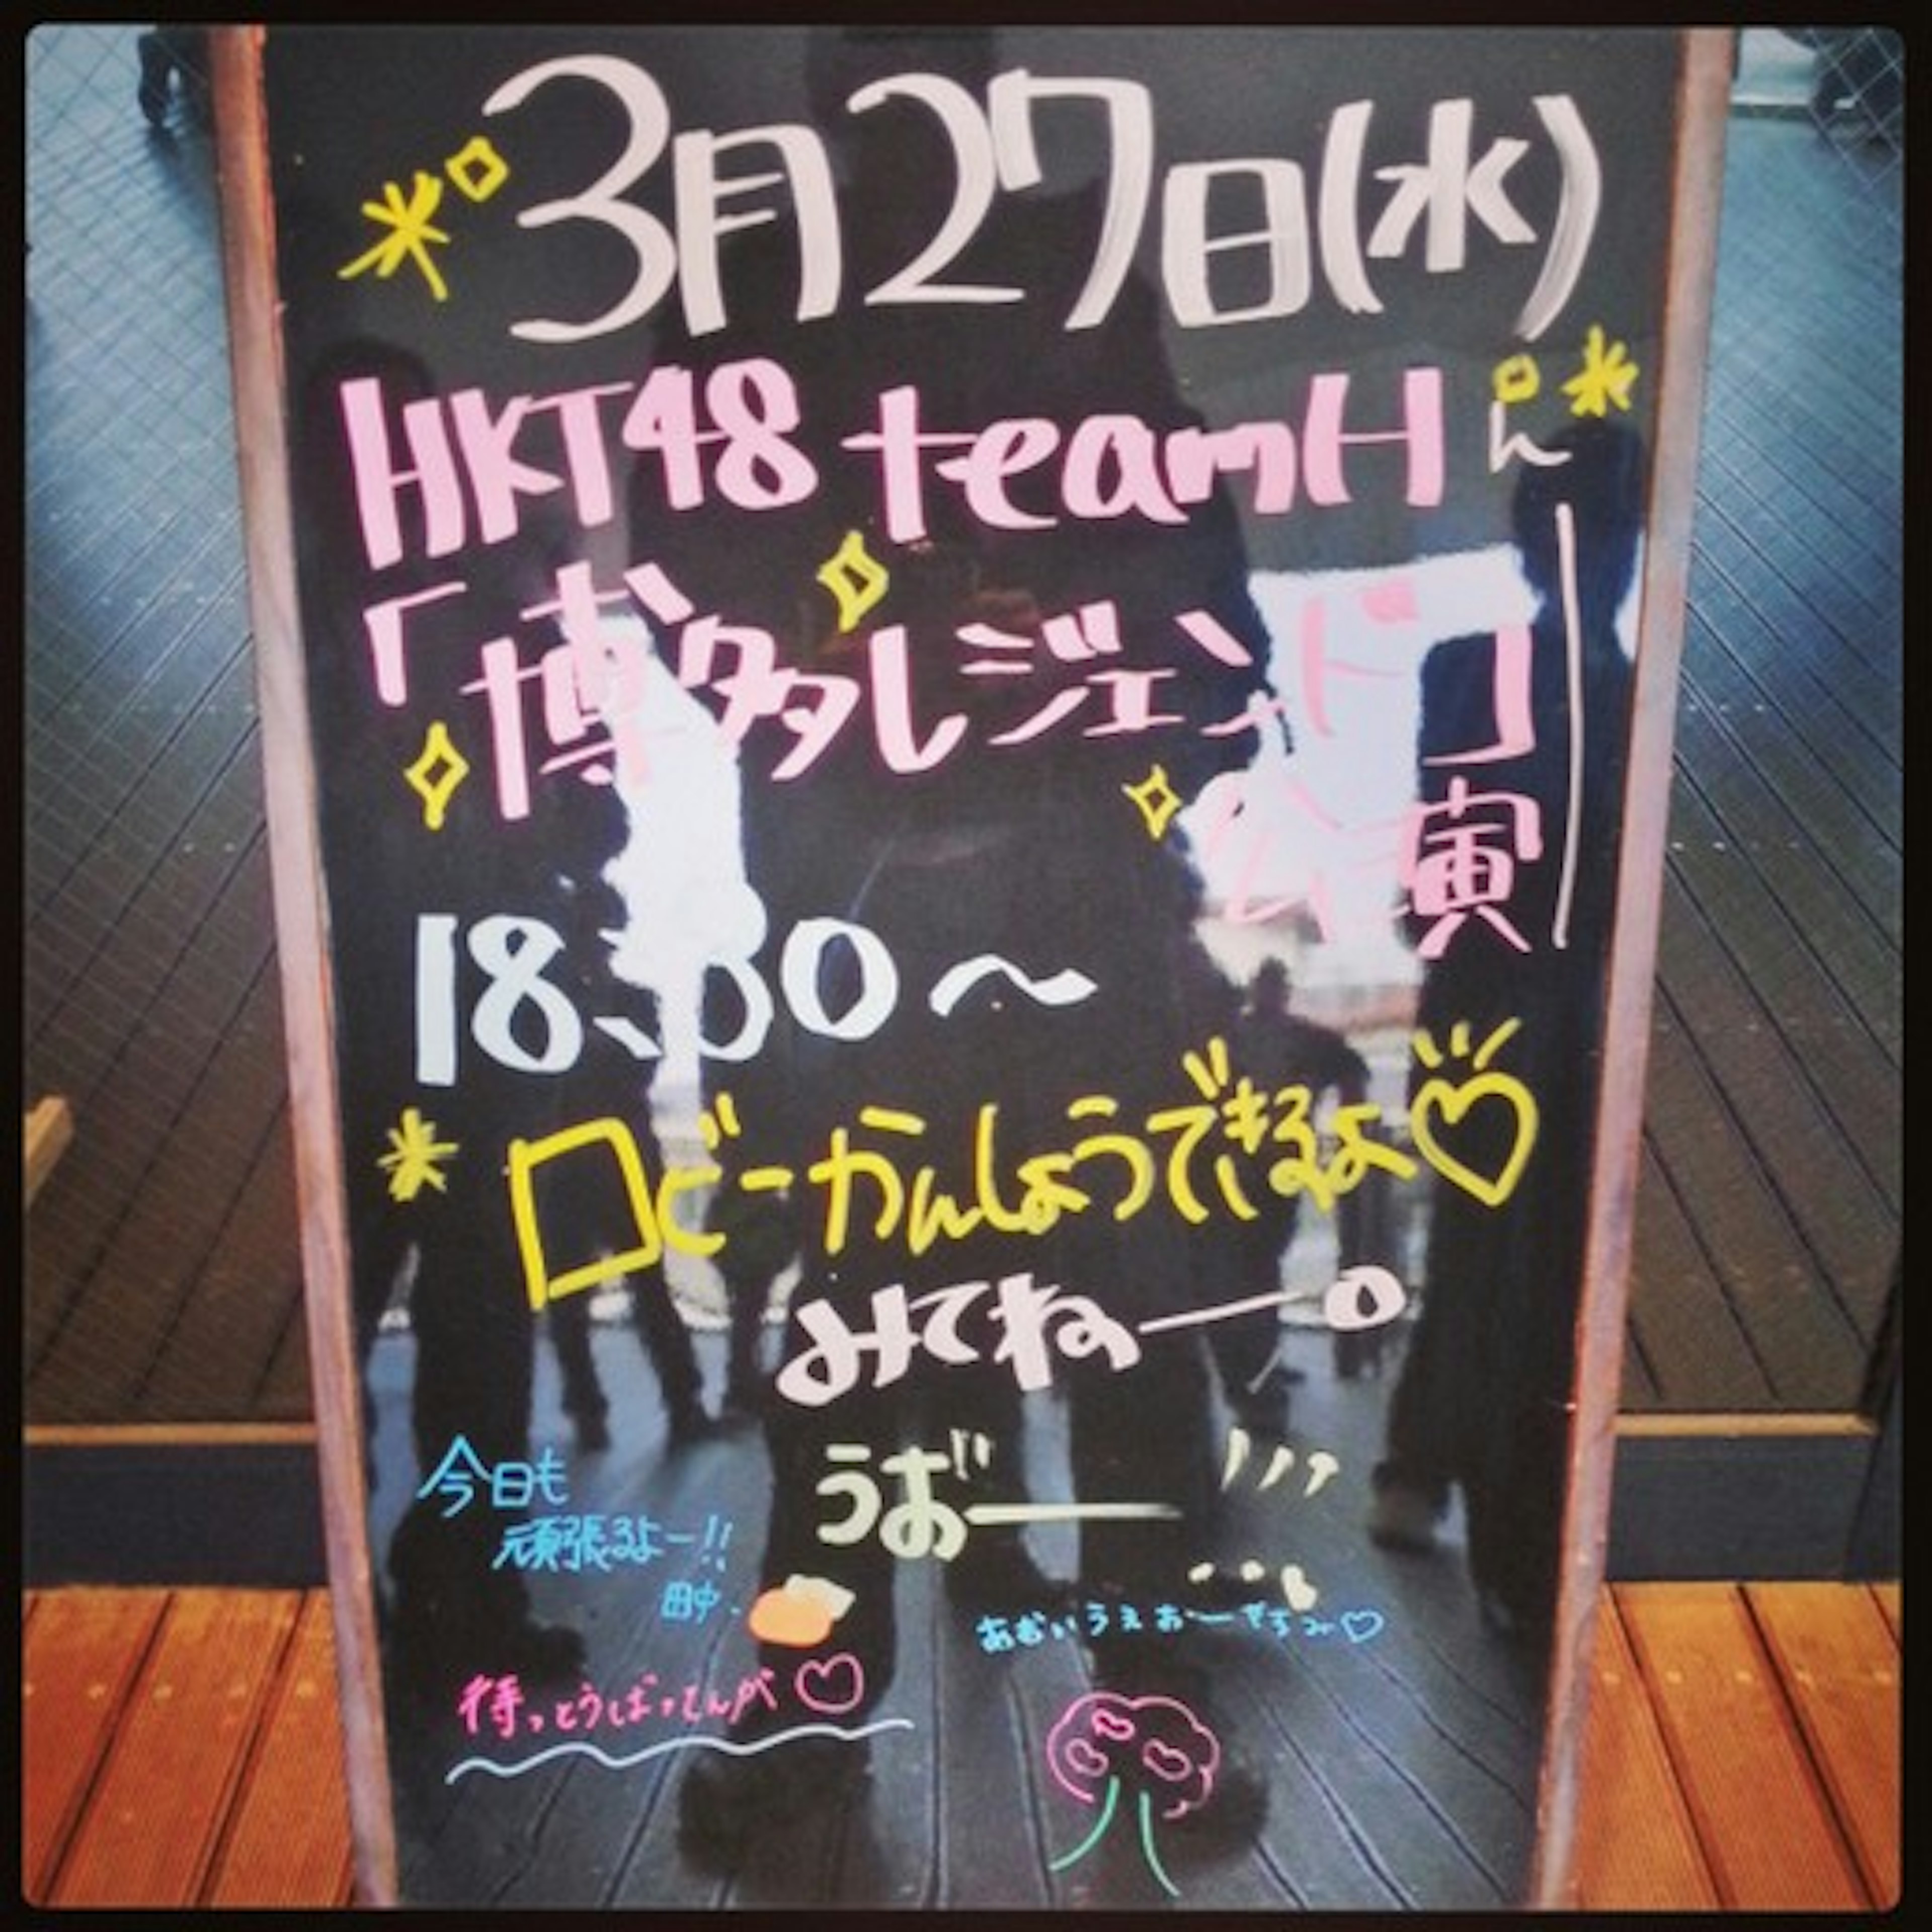 3月27日(水)
HKT48 teamH
「博多レジェンド」
公演
18:30〜
ロビーかんしょうできるよ♡
みてねー。
うおー
今日も
頑張るよー!!
田中
待っとうばってんが♡